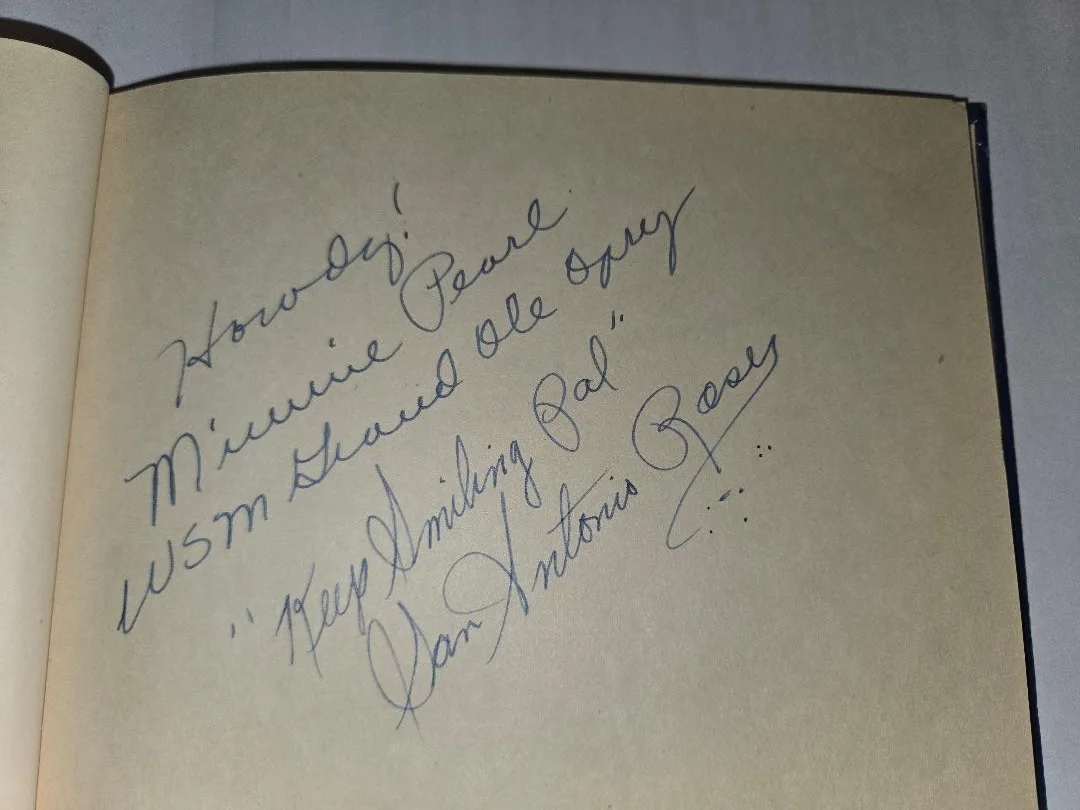 Howdy!
Minnie Pearl
WSM Grand Ole Opry
"Keep Smiling Pal"
San Antonio Rose